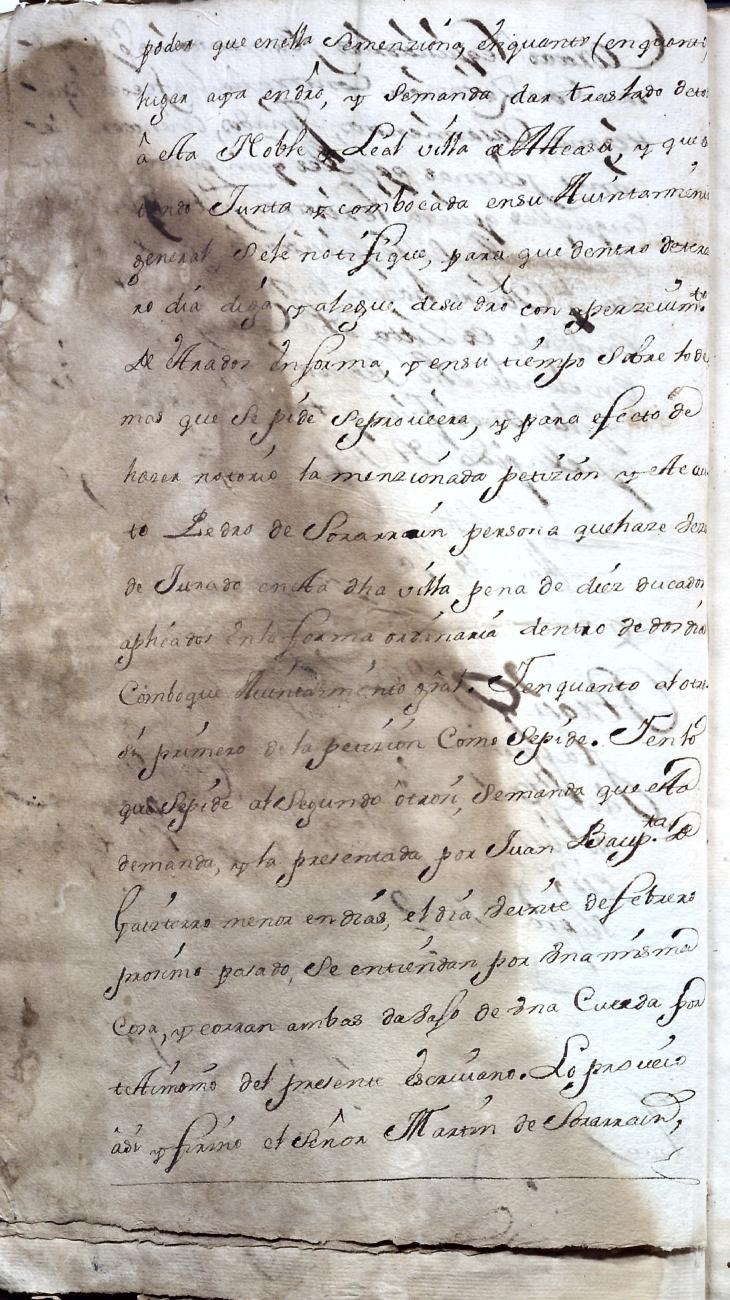 poder que enella semenziona, enquanto (enquanto
lugar aya endro, y semanda dar traslado deto
â esta Noble y Leal villa de Alteasu, y que
Junta y combocada ensu Aiuntamien
general sele notifique, para que dentro deterze
ro dia diga y alegue desu dro con aperzeuimto
De Estrados enforma, y ensu tiempo sobre lode
mas que se pide seproueera, y para efecto de
hazer notorio la menzionada petizion y este au
to Pedro de Sorarrain persona quehaze vezes
de Jurado enesta dha villa pena de diez ducados
aplicados enla forma ordinaria dentro de dos dias
Comboque Aiuntamiento gral. Y enquanto al otro
si primero de la petizion Como sepide. Y en lo
que sepide al segundo otrosi, semanda que esta
demanda, y la presentada por Juan Bapta de
menor endias, el dia veinte de febrero
proximo pasado, se entiendan por vna misma
Cosa, y corran ambas vajo de vna Cuerda por
testimonio del presente escriuano. Lo proueio
âsi y firmo el Señor Martin de Sorarrain,